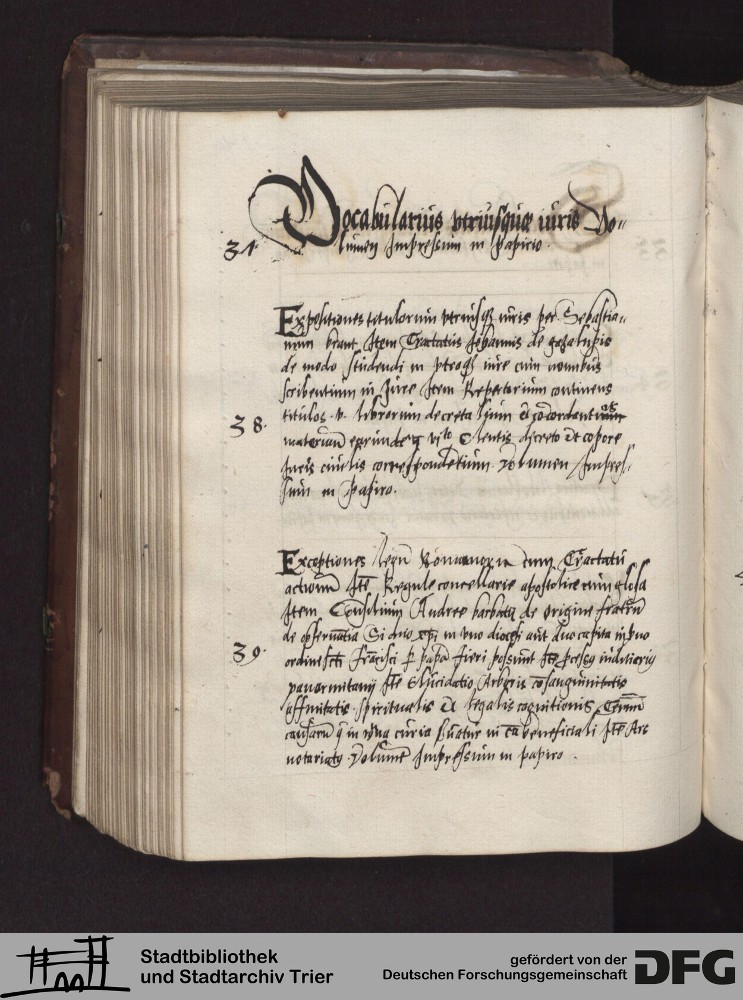 Vocabularius vtriusque iuris Vo-
31. lumen Impressum in Papiro.
Expositiones titulorum vtriusq iuris per Sebastia-
num brant Item Tractatus Johannis de
de modo studendi in vtroq iure cum nominibus
scribentium in Jure Item Repertorium continens
38. titulos v. librorum decretalium
materiam
Juris ciuilis correspondentium. Volumen Impres-
sum in Papiro.
Exceptiones legum Romanorum cum Tractatu
actionum Ite Regule concellarie apostolice cum glosa
Item Consilium Andree barbatij de origine fratrum
de obseruantia Si duo in vno diocesi aut duo capita in vno
39. ordine scti Francisci per papa fieri possunt Ite
panormitanij Ite Elucidatio Arboris cosanguinitatis
affinitatis spiritualis et legalis cognitionis
causaru q in curia in ca beneficiali Ite Ars
notariatq Volume Impressum in papiro.
Stadtbibliothek
und Stadtarchiv Trier
gefördert von der
Deutschen Forschungsgemeinschaft
DFG